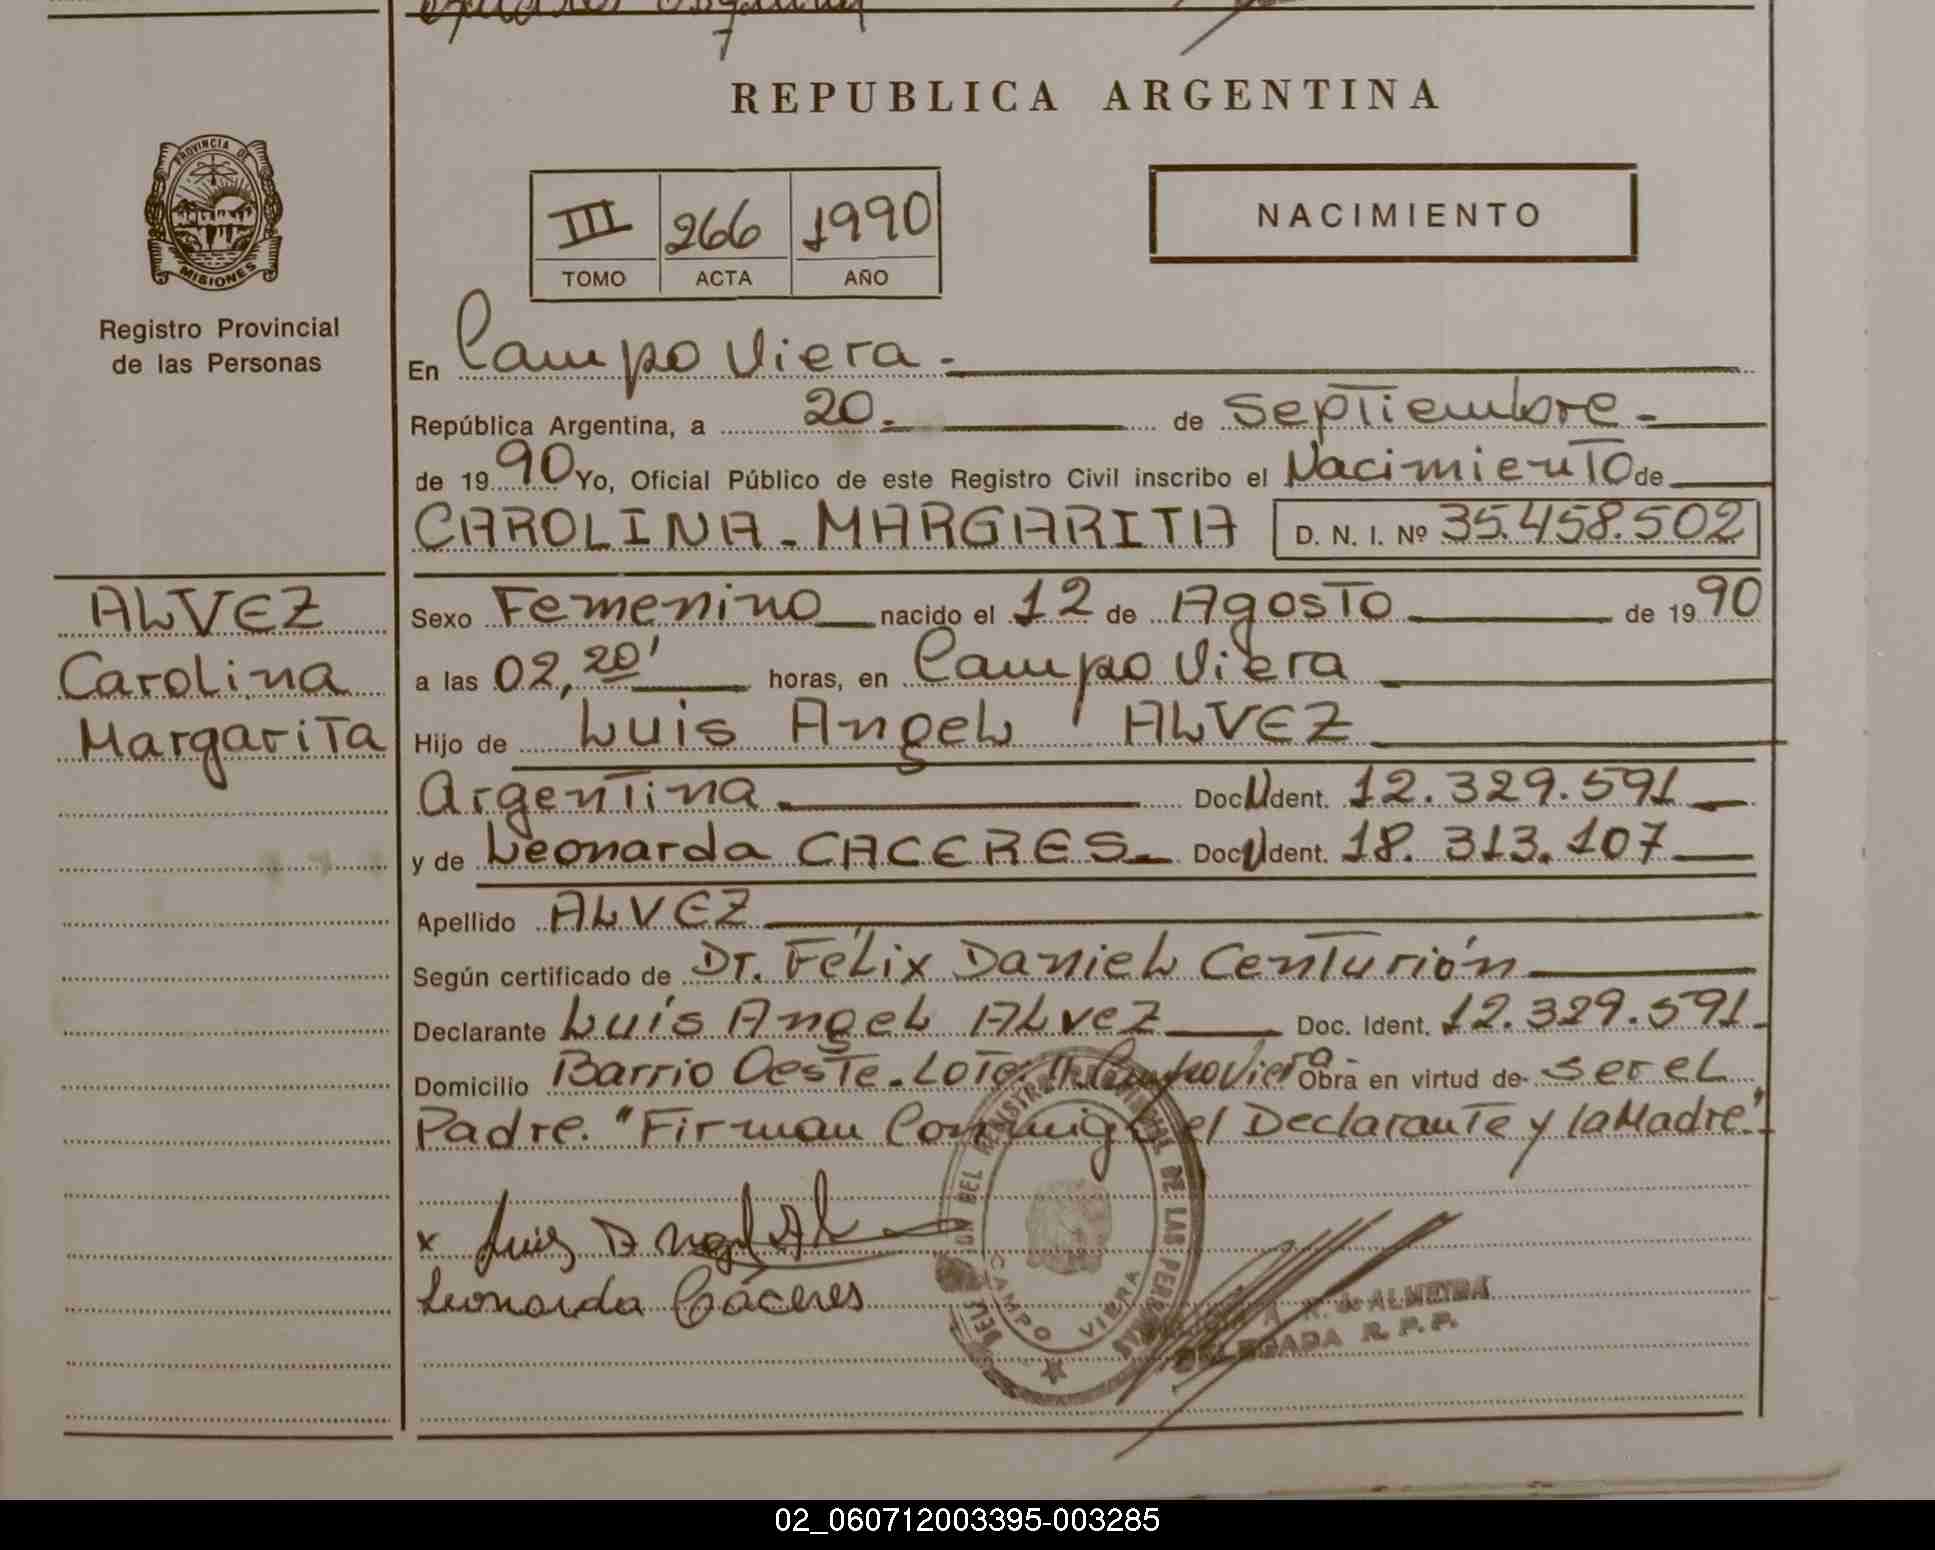 REPUBLICA ARGENTINA
PROVINCIA DE
MISIONES
Registro Provincial
de las Personas
III 266 1990
TOMO ACTA AÑO
NACIMIENTO
En Campo Viera.-
República Argentina, a 20.- de Septiembre.-
de 1990 Yo, Oficial Público de este Registro Civil inscribo el Nacimiento de
CAROLINA - MARGARITA D. N. I. Nº 35.458.502
ALVEZ
Carolina
Margarita
Sexo Femenino nacido el 12 de Agosto de 1990
a las 02,20' horas, en Campo Viera
Hijo de Luis Angel ALVEZ
Argentina Doc. U Ident. 12.329.591
y de Leonarda CACERES.- Doc. U Ident. 18.313.107
Apellido ALVEZ
Según certificado de Dr. Félix Daniel Centurión
Declarante Luis Angel ALvez Doc. Ident. 12.329.591.
Domicilio Barrio Oeste. Lote. 11 Campo Viera- Obra en virtud de ser el
Padre. "Firman Conmigo el Declarante y la Madre".
x Luis Angel Al
Leonarda Cáceres
DE LAS PERSONAS
CAMPO VIERA
de ALMEYDA
DELEGADA R. P. P.
02_060712003395-003285